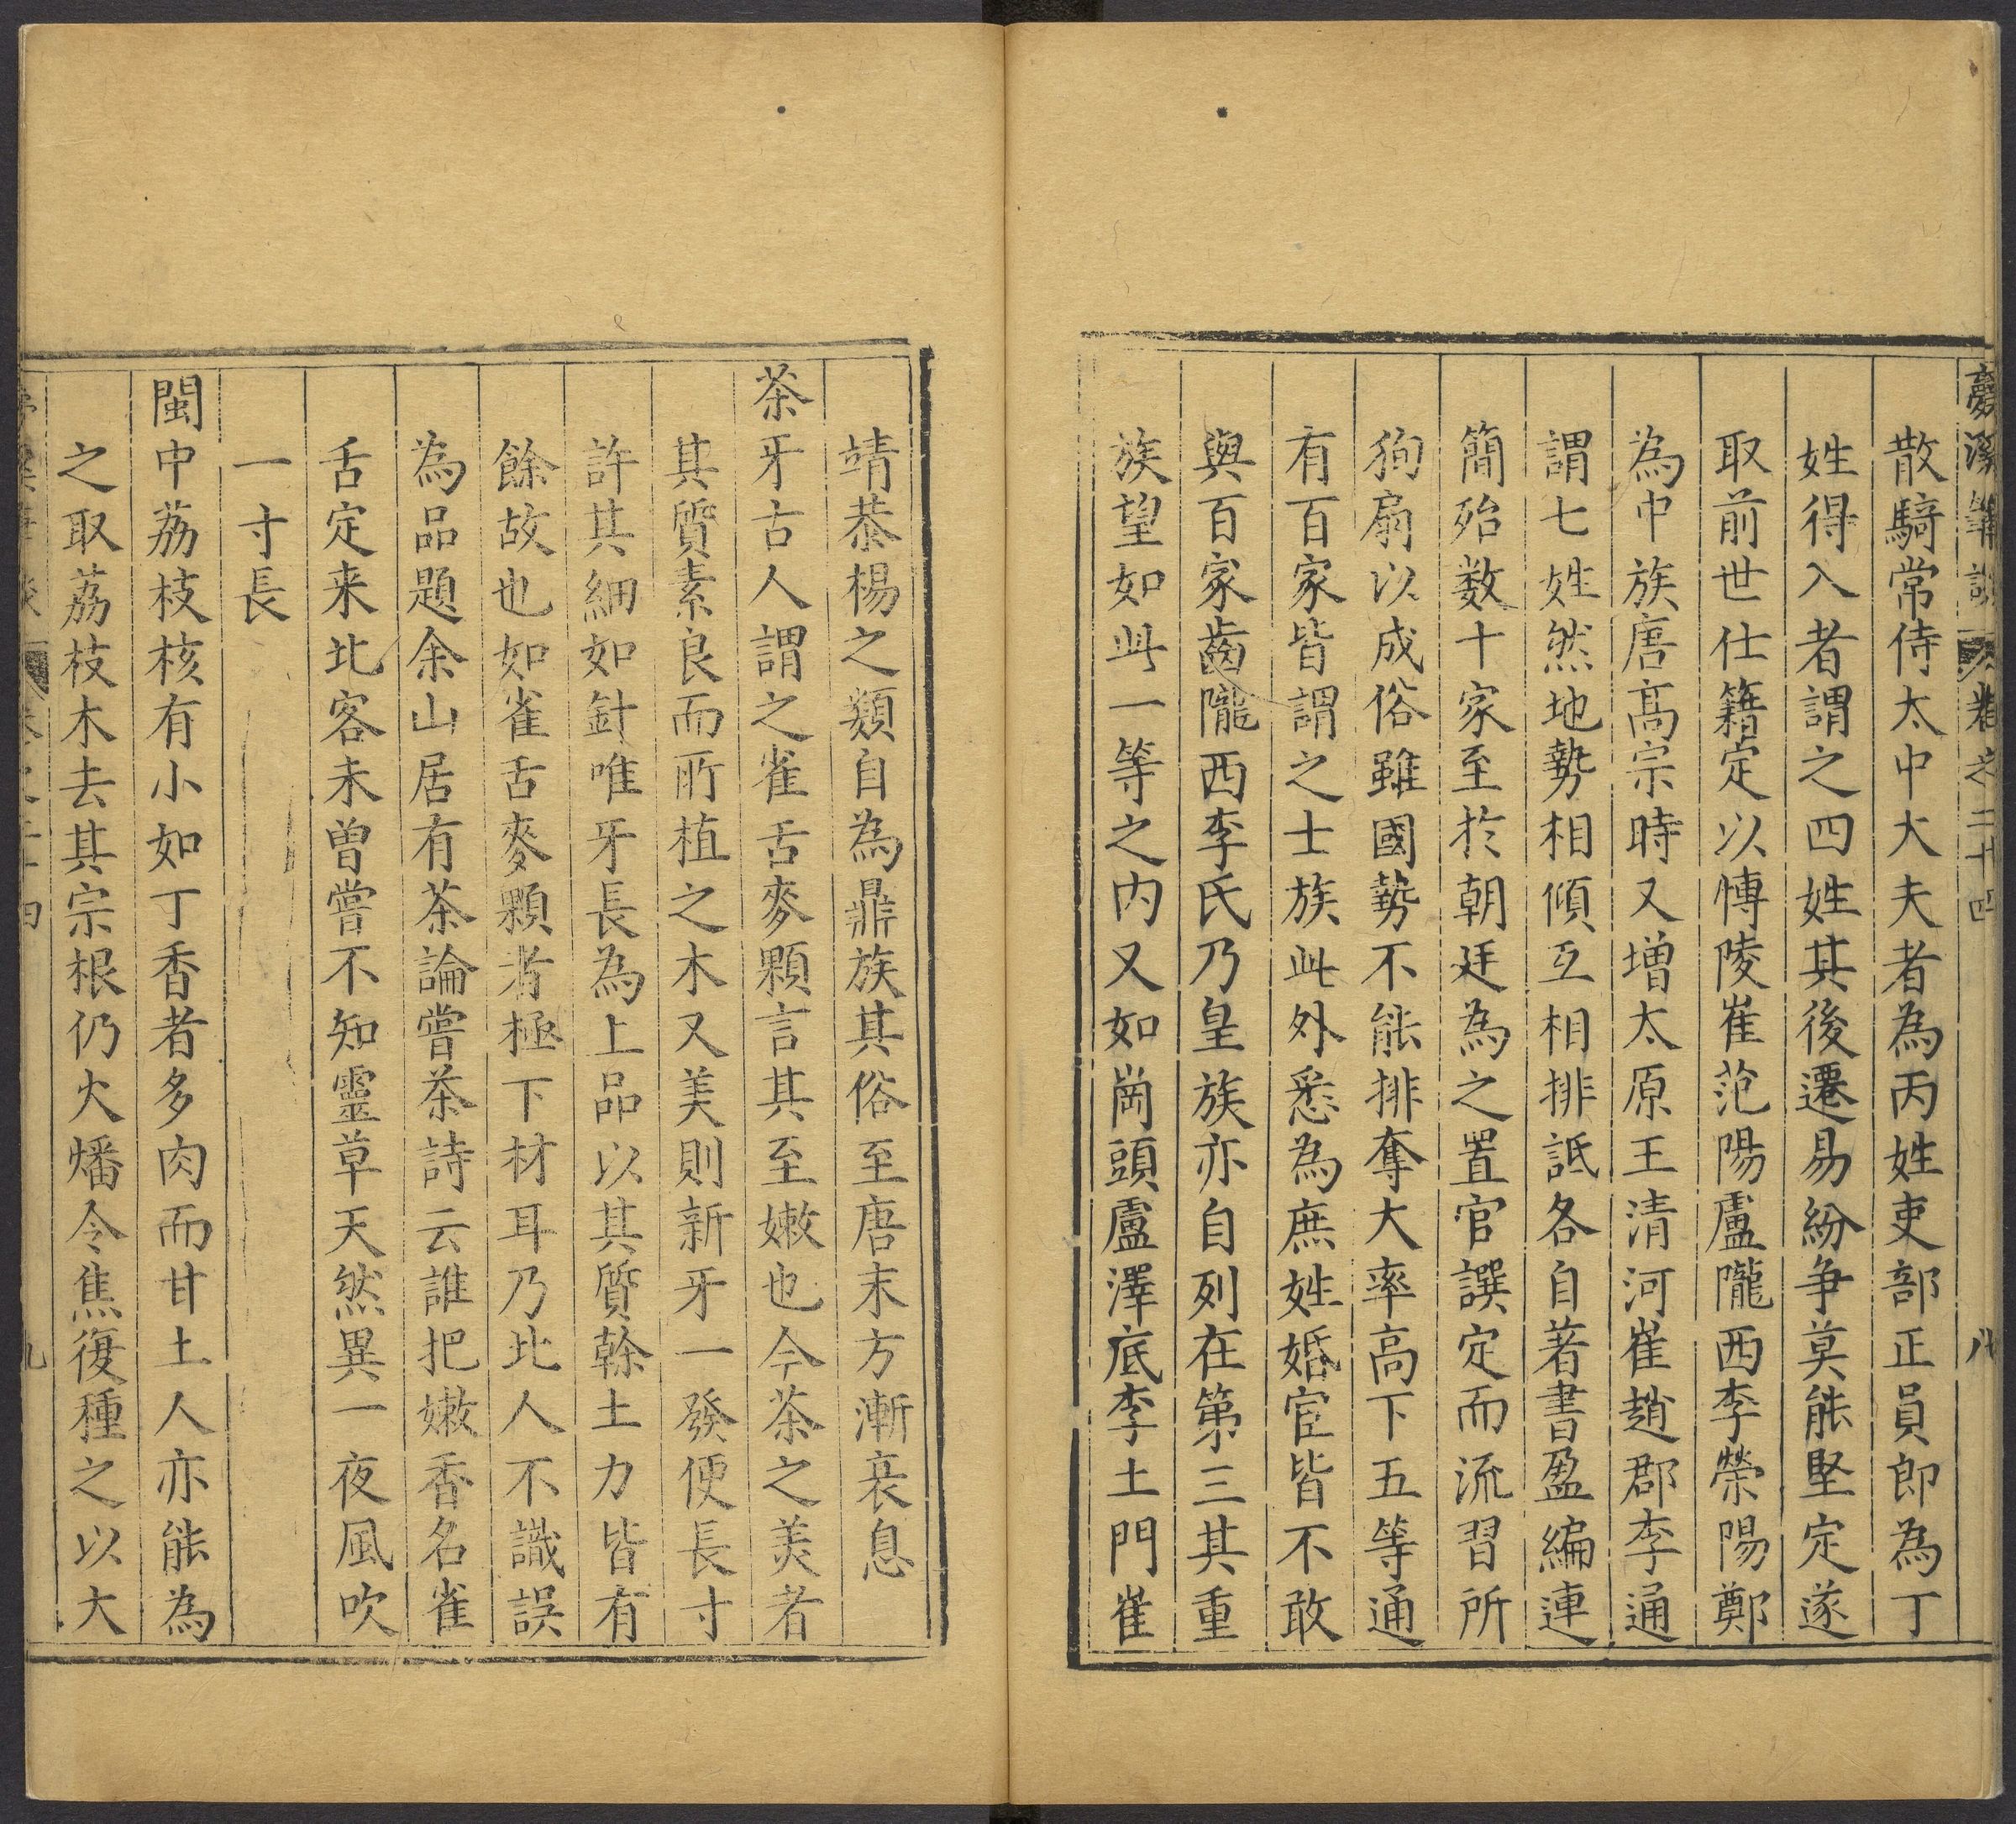 夢溪筆談 卷之二十四 八
散騎常侍太中大夫者為丙姓吏部正員郎為丁
姓得入者謂之四姓其後遷易紛爭莫能堅定遂
取前世仕籍定以博陵崔范陽盧隴西李榮陽鄭
為中族唐高宗時又增太原王清河崔趙郡李通
謂七姓然地勢相傾互相排詆各自著書盈編連
簡殆数十家至於朝廷為之置官譔定而流習所
狥扇以成俗雖國勢不能排奪大率高下五等通
有百家皆謂之士族此外悉為庶姓婚宦皆不敢
與百家齒隴西李氏乃皇族亦自列在第三其重
族望如此一等之内又如崗頭盧澤底李土門崔
靖恭楊之類自為鼎族其俗至唐末方漸衰息
茶牙古人謂之雀舌麥顆言其至嫩也今茶之美者
其質素良而所植之木又美則新牙一發便長寸
許其細如針唯牙長為上品以其質榦土力皆有
餘故也如雀舌麥顆者極下材耳乃北人不識誤
為品題余山居有茶論嘗茶詩云誰把嫩香名雀
舌定来北客未曾嘗不知靈草天然異一夜風吹
一寸長
閩中荔枝核有小如丁香者多肉而甘土人亦能為
之取荔枝木去其宗根仍火燔令焦復種之以大